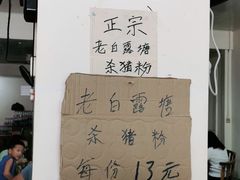 正宗
老白露塘
杀猪粉
老白露塘
杀猪粉
每份13元